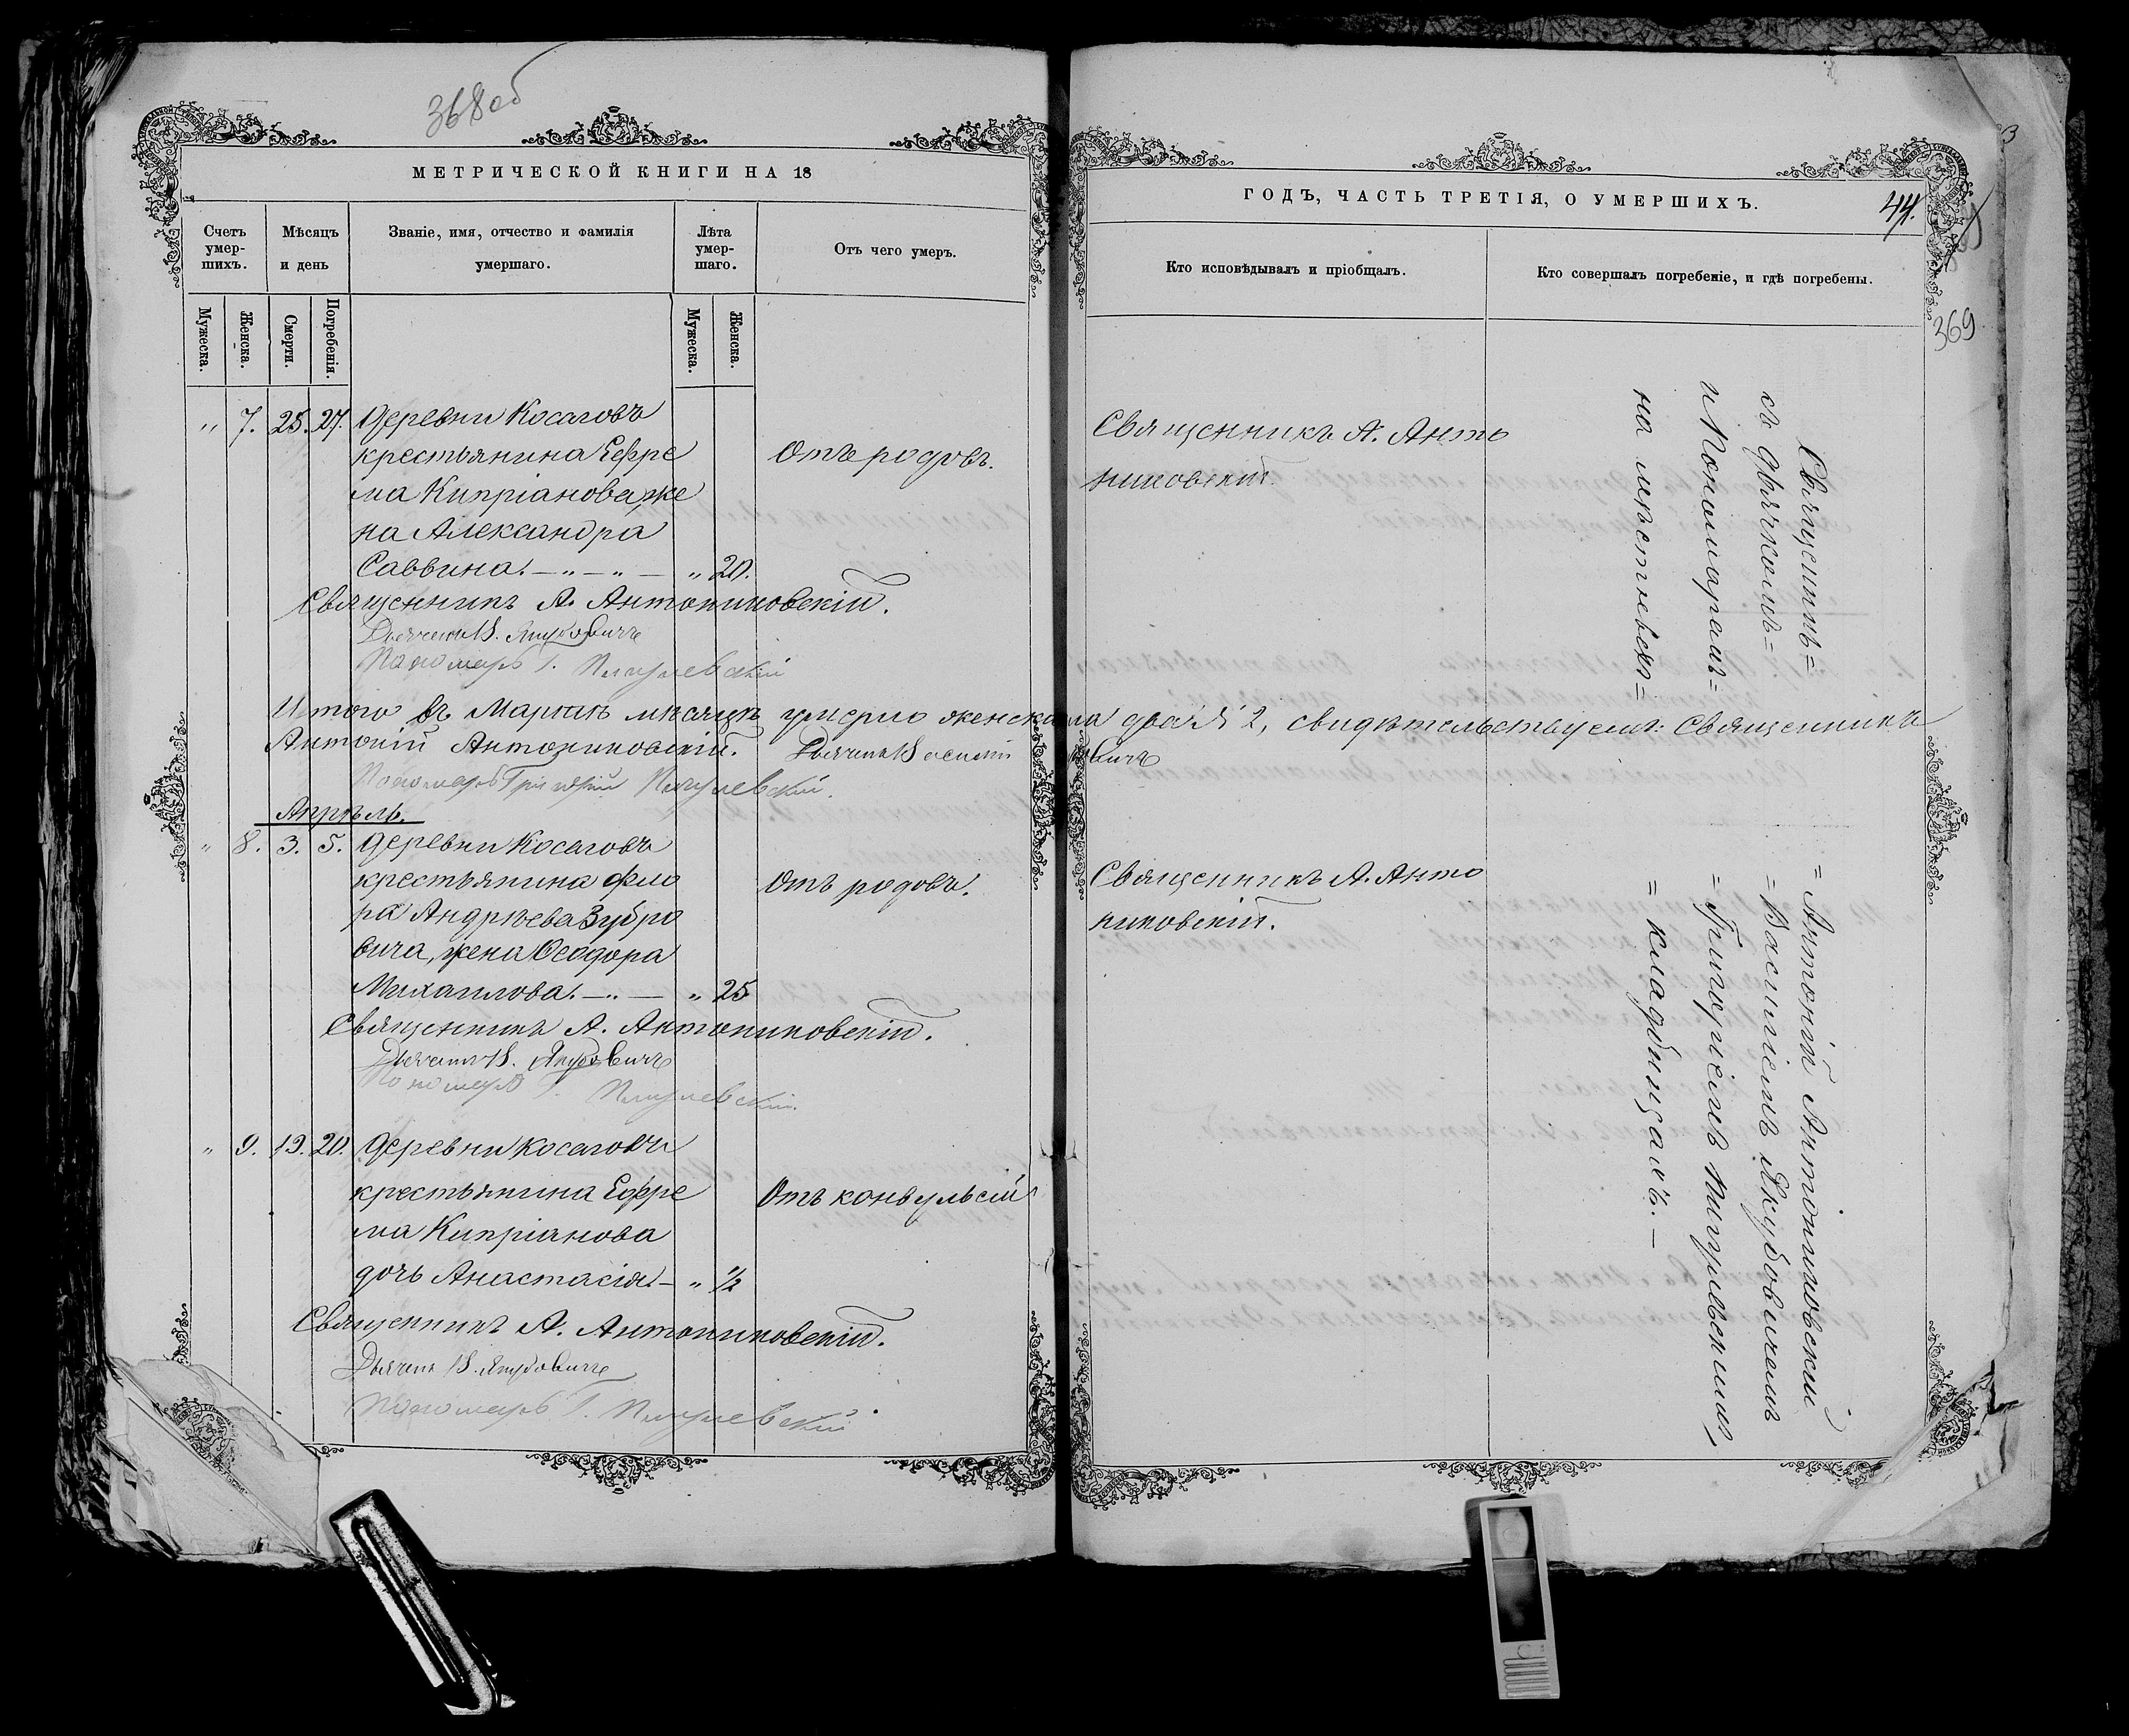 368 об
МЕТРИЧЕСКОЙ КНИГИ НА 18
Счетъ умершихъ.
Мѣсяцъ и день
Званіе, имя, отчество и фамилія умершаго.
Лѣта умершаго.
Отъ чего умеръ.
Мужеска.
Женска.
Смерти.
Погребенія.
Мужеска.
Женска.
„ 7. 25. 27. Деревни Косаговъ
крестьянина Ефре
ма Кипріанова, же
на Александра
Саввина. — „ — „ — „ 20.
Отъ родовъ.
Священникъ А. Антониковскій.
Дьячекъ В. Якубовичъ
Пономарь Г.
Итого въ Мартѣ мѣсяцѣ умерло женска пола два № 2, свидѣтельствуемъ: Священникъ
Антоній Антониковскій. Дьячекъ Василій
Пономарь Григорій
Апрѣль.
„ 8. 3. 5. Деревни Косаговъ
крестьянина Фло
ра Андреева Зубро
вича, жена Ѳеодора
Михаилова. — „ — „ 25
Отъ родовъ.
Священникъ А. Антониковскій.
Дьячекъ В. Якубовичъ
Пономарь Г.
„ 9. 19. 20. Деревни Косаговъ
крестьянина Ефре
ма Кипріанова
дочь Анастасія. — „ ½
Отъ конвульсій
Священникъ А. Антониковскій.
Дьячекъ В. Якубовичъ
Пономарь Г.
ГОДЪ, ЧАСТЬ ТРЕТІЯ, О УМЕРШИХЪ.
44.
369
Кто исповѣдывалъ и пріобщалъ.
Кто совершалъ погребеніе, и гдѣ погребены.
Священникъ А. Анто
никовскій.
Священникъ А. Анто
никовскій.
Священникъ = = Антоній Антониковскій
съ дьячкомъ = = Василіемъ Якубовичемъ
и Пономаремъ = = Григоріемъ
на мѣстномъ = = кладбищахъ. —